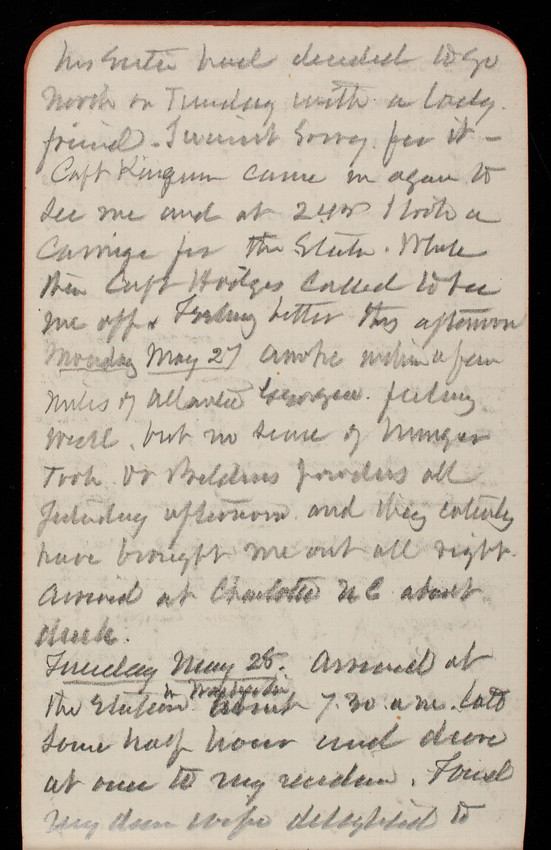 his sister had decided to go
North on Tuesday with a lady
friend. I wasn't sorry for it -
Capt Kingman came in again to
see me and at 2 I took a
Carriage for the Station. While
there Capt Hodges called to see
me off & Feeling better this afternoon
Monday May 27 awoke within a few
miles of Atlanta Georgia. feeling
well, but no sense of hunger
Took Dr Beldens powders all
yesterday afternoon and they entirely
have brought me out all right.
Arrived at Charlotte N C about
dusk.
Tuesday May 28. Arrived at
the Station in Washington about 7.30 a.m. late
some half hour and drove
at once to my residence. Found
my dear wife delighted to